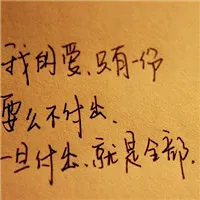 我的爱、只有一份
要么不付出、
一旦付出、就是全部、